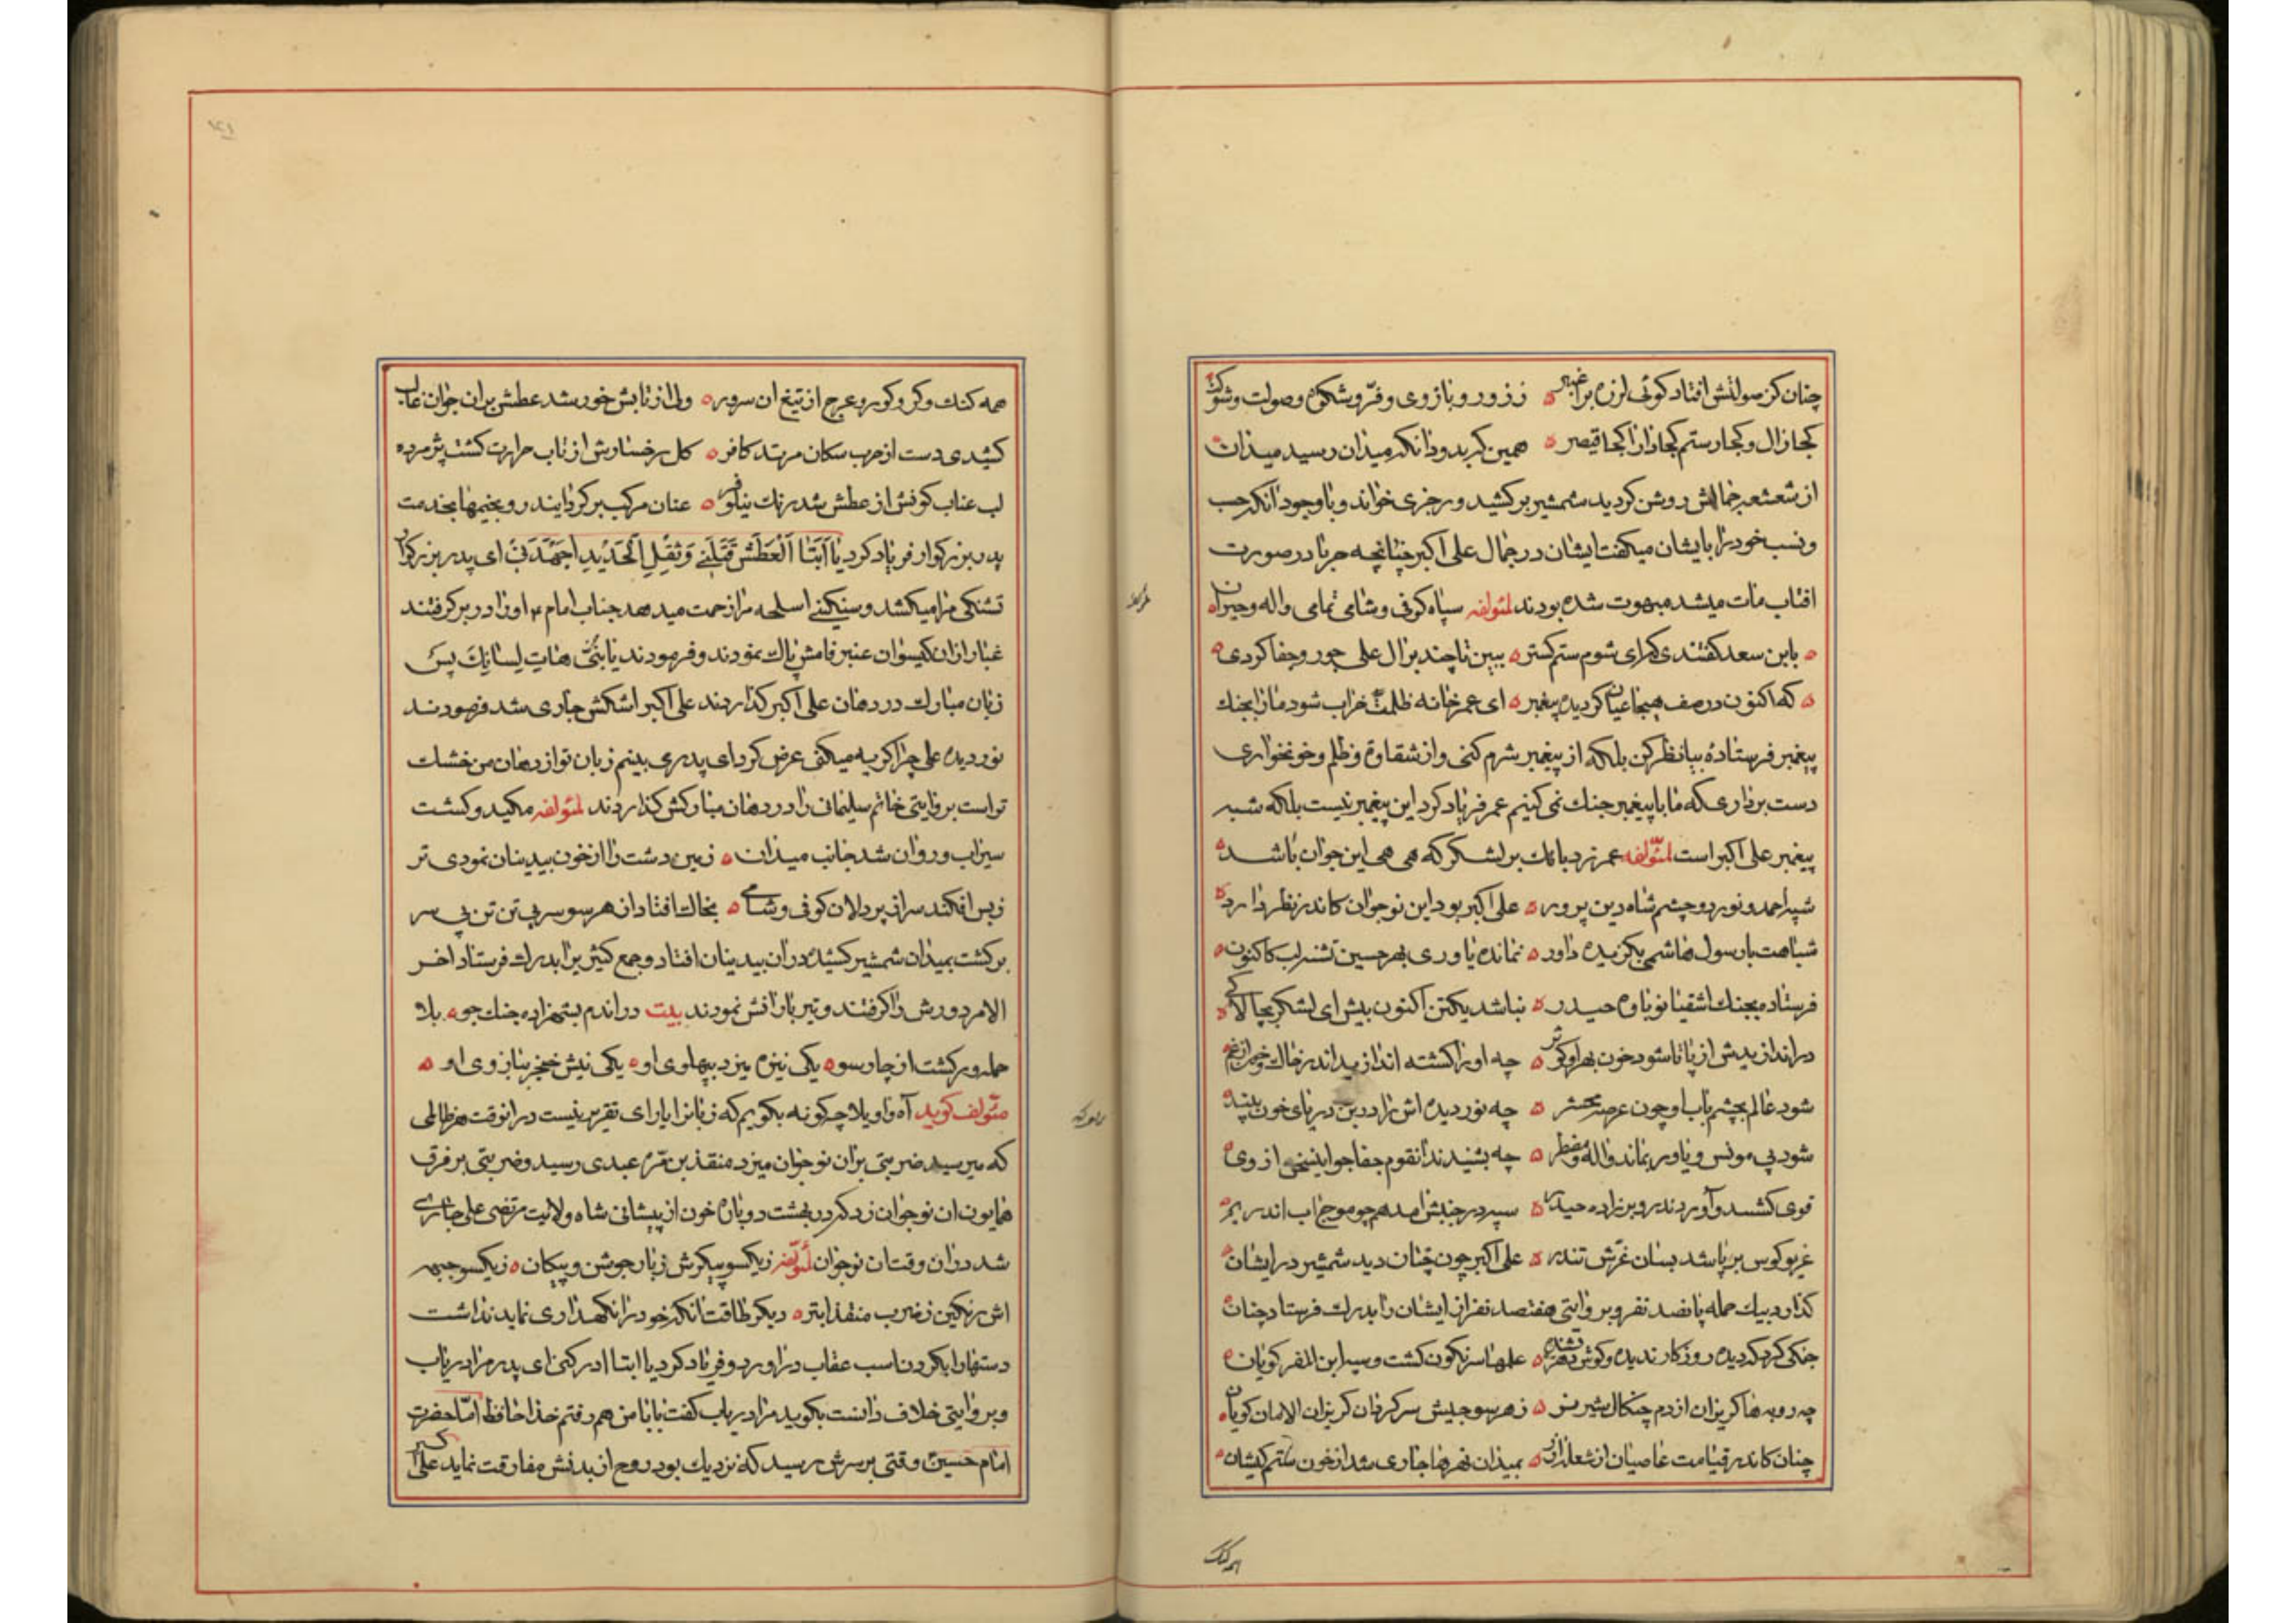 چنان کز صولتش افتاد کوئی لرزه بر اغبر ه ز زور و بازوی و فرّ و شکوه و صولت و شوکت
کجا زال و کجا رستم کجا دارا کجا قیصر ه همین کربد و دانکه میدان رسید میدان
از شعشعه جمالش روشن کردید شمشیر برکشید و رجزی خواند و با وجود آنکه حسب
و نسب خود را بایشان میکفت ایشان در جمال علی اکبر چنانچه حربا در صورت
افتاب مات میشد مبهوت شده بودند لمؤلفه سپاه کوفی و شامی تمامی واله و حیران ه
ه بابن سعد کفتندی که ای شوم ستم کستر ه ببین تا چند بر ال علی جور و جفا کردی ه
ه که اکنون در صف هیجا عیان کردیده پیغمبر ه ای عمر خانه ظلمت خراب شود ما را بجنک
پیغمبر فرستادهٔ بیا نظر کن بلکه از پیغمبر شرم کنی و از شقاوة و ظلم و خونخواری
دست برداری که ما با پیغمبر جنک نمی کنیم عمر فریاد کرد این پیغمبر نیست بلکه شبه
پیغمبر علی اکبر است لمؤلفه عمر زد بانک بر لشکر که هی هی این جوان باشد ه
شبه احمد و نور دو چشم شاه دین پرور ه علی اکبر بود این نوجوان کاندر نظر دارد ه
شباهت با رسول هاشمی بکزیده داور ه نمانده یاوری بهر حسین تشنه لب کاکنون ه
فرستاده بجنک اشقیا نوباوه حیدر ه نباشد یکتن اکنون بیش ای لشکر بچالاکی ه
در اندازیدش از پا تا شود خون بهر او کوثر ه چه او را کشته اندازید اندر خاک و خون از غم
شود عالم بچشم باب او چون عرصه محشر ه چه نور دیده اش را در بن دریای خون بیند ه
شود بی مونس و یاور بماند واله و مضطر ه چه بشنیدند انقوم جفاجو این سخن از وی ه
قوی کشتند و آوردند رو بر زاده حیدر ه سپه در جنبش امد همچو موج اب اندر یم ه
غریو کوس بر پا شد بسان غرّش تندر ه علی اکبر چون چنان دید شمشیر در ایشان ه
کذارد بیک حمله پانصد نفر و بروایتی هفتصد نفر از ایشان را بدرک فرستاد چنان ه
جنکی کرد که دیده روزکار ندیده و کوش دهر نشنیده ه علمها سرنکون کشت و سپه این المفر کویان ه
چه روبه ها کریزان از دم چنکال شیر نر ه ز هر سو جیش سرکردان کریزان الامان کویان ه
چنان کاندر قیامت عاصیان از شعله اذر ه بمیدان نهرها جاری شد از خون ستم کیشان ه
همه کنک
همه کنک و کر و کور و عرج از تیغ ان سرور ه ولی از تابش خورشد عطش بر ان جوان غالب
کشیدی دست از حرب سکان مرتد کافر ه کل رخساروش از تاب حرارت کشت پژمرده
لب عناب کونش از عطش شد رنک نیلوفر ه عنان مرکب برکردانید رو بخیمها بخدمت
پدر بزرکوار فریاد کرد یٰا اَبَتٰا اَلْعَطَشُ قَتَلَنی وَ ثِقْلِ الْحَدٖیدِ اَجْهَدَنی ای پدر بزرکوار
تشنکی مرا میکشد و سنکینی اسلحه مرا زحمت میدهد جناب امام ع او را در بر کرفتند
غبار از ان کیسوان عنبر فامش پاک نمودند و فرمودند یا بُنَیَّ هٰاتِ لِسٰانَکَ پس
زبان مبارک در دهان علی اکبر کذاردند علی اکبر اشکش جاری شد فرمودند
نور دیده علی چرا کریه میکنی عرض کرد ای پدر می بینم زبان تو از دهان من خشک
تر است بروایتی خاتم سلیمانی را در دهان مبارکش کذاردند لمؤلفه مکید و کشت
سیراب و روان شد جانب میدان ه زمین دشت را از خون بیدینان نمودی تر
ز بس افکند سر از پردلان کوفی و شامی ه بخاک افتاد از هر سو سر بی تن تن بی سر
برکشت بمیدان شمشیر کشیده در ان بیدینان افتاد و جمع کثیری را بدرک فرستاد اخر
الامر دورش را کرفتند و تیر بارانش نمودند بیت در اندم بشهزاده جنک جو ه بلا
حمله ور کشت از چار سو ه یکی نیزه میزد بپهلوی او ه یکی نیش خنجر ببازوی او ه
مؤلف کوید آه واویلا چکونه بکویم که زبانرا یارای تقریر نیست در انوقت هر ظالمی
که میرسید ضربتی بر ان نوجوان میزد منقذ بن مره عبدی رسید و ضربتی بر فرق
همایون ان نوجوان زد که در بهشت دوباره خون از پیشانی شاه ولایت مرتضی علی جاری
شد در ان وقت ان نوجوان لمؤلفه ز یکسو پیکرش زبار جوشن و پیکان ه ز یکسو جبهه
اش رنکین ز ضرب منقذ ابتر ه دیکر طاقت انکه خود را نکهداری نماید نداشت
دستها را بکردن اسب عقاب در اورد و فریاد کرد یا ابتا ادرکنی ای پدر مرا دریاب
و بروایتی خلاف دانست بکوید مرا دریاب کفت بابا من هم رفتم خدا حافظ امّا حضرت
امام حسین وقتی بر سرش رسید که نزدیک بود روح از بدنش مفارقت نماید علی اکبر